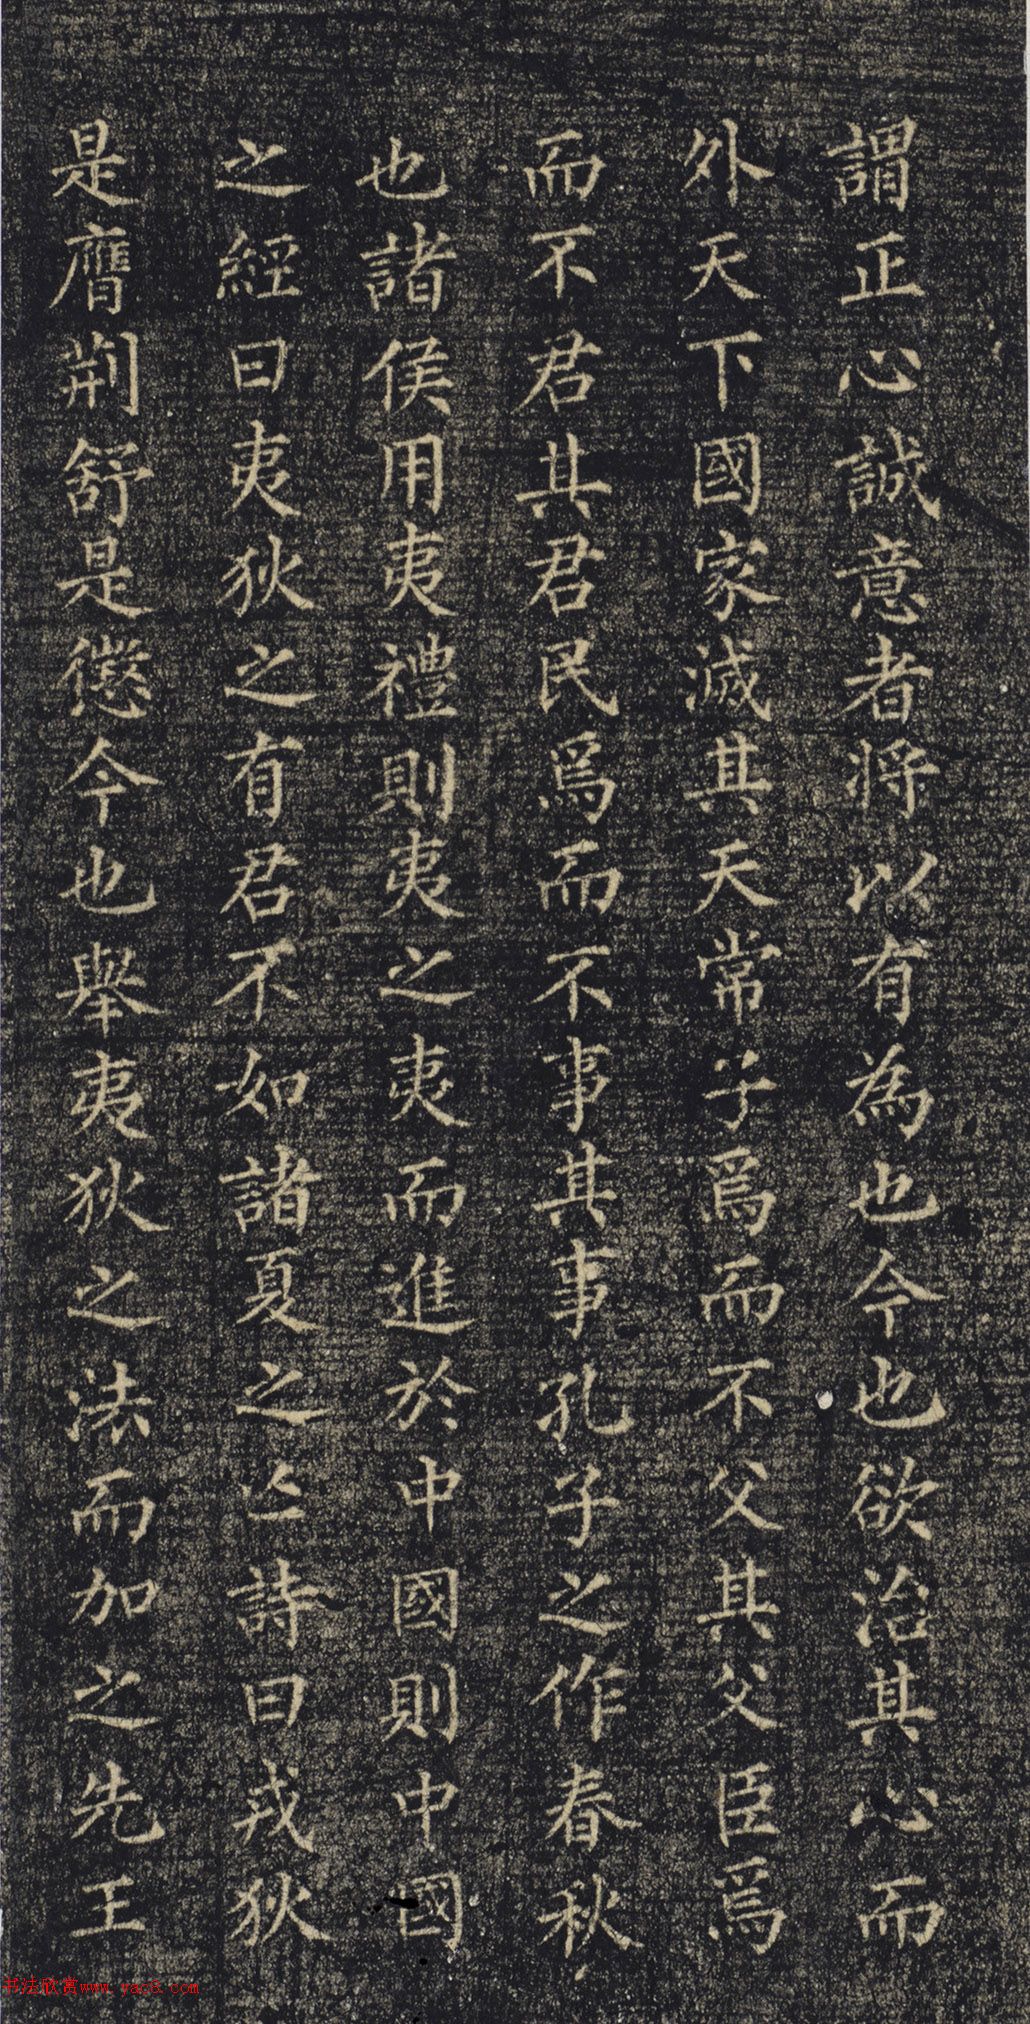 謂正心誠意者將以有為也今也欲治其心而
外天下國家滅其天常子爲而不父其父臣爲
而不君其君民爲而不事其事孔子之作春秋
也諸侯用夷禮則夷之夷而進於中國則中國
之經曰夷狄之有君不如諸夏之亡詩曰戎狄
是膺荆舒是懲今也舉夷狄之法而加之先王
书法欣赏www.yac8.com